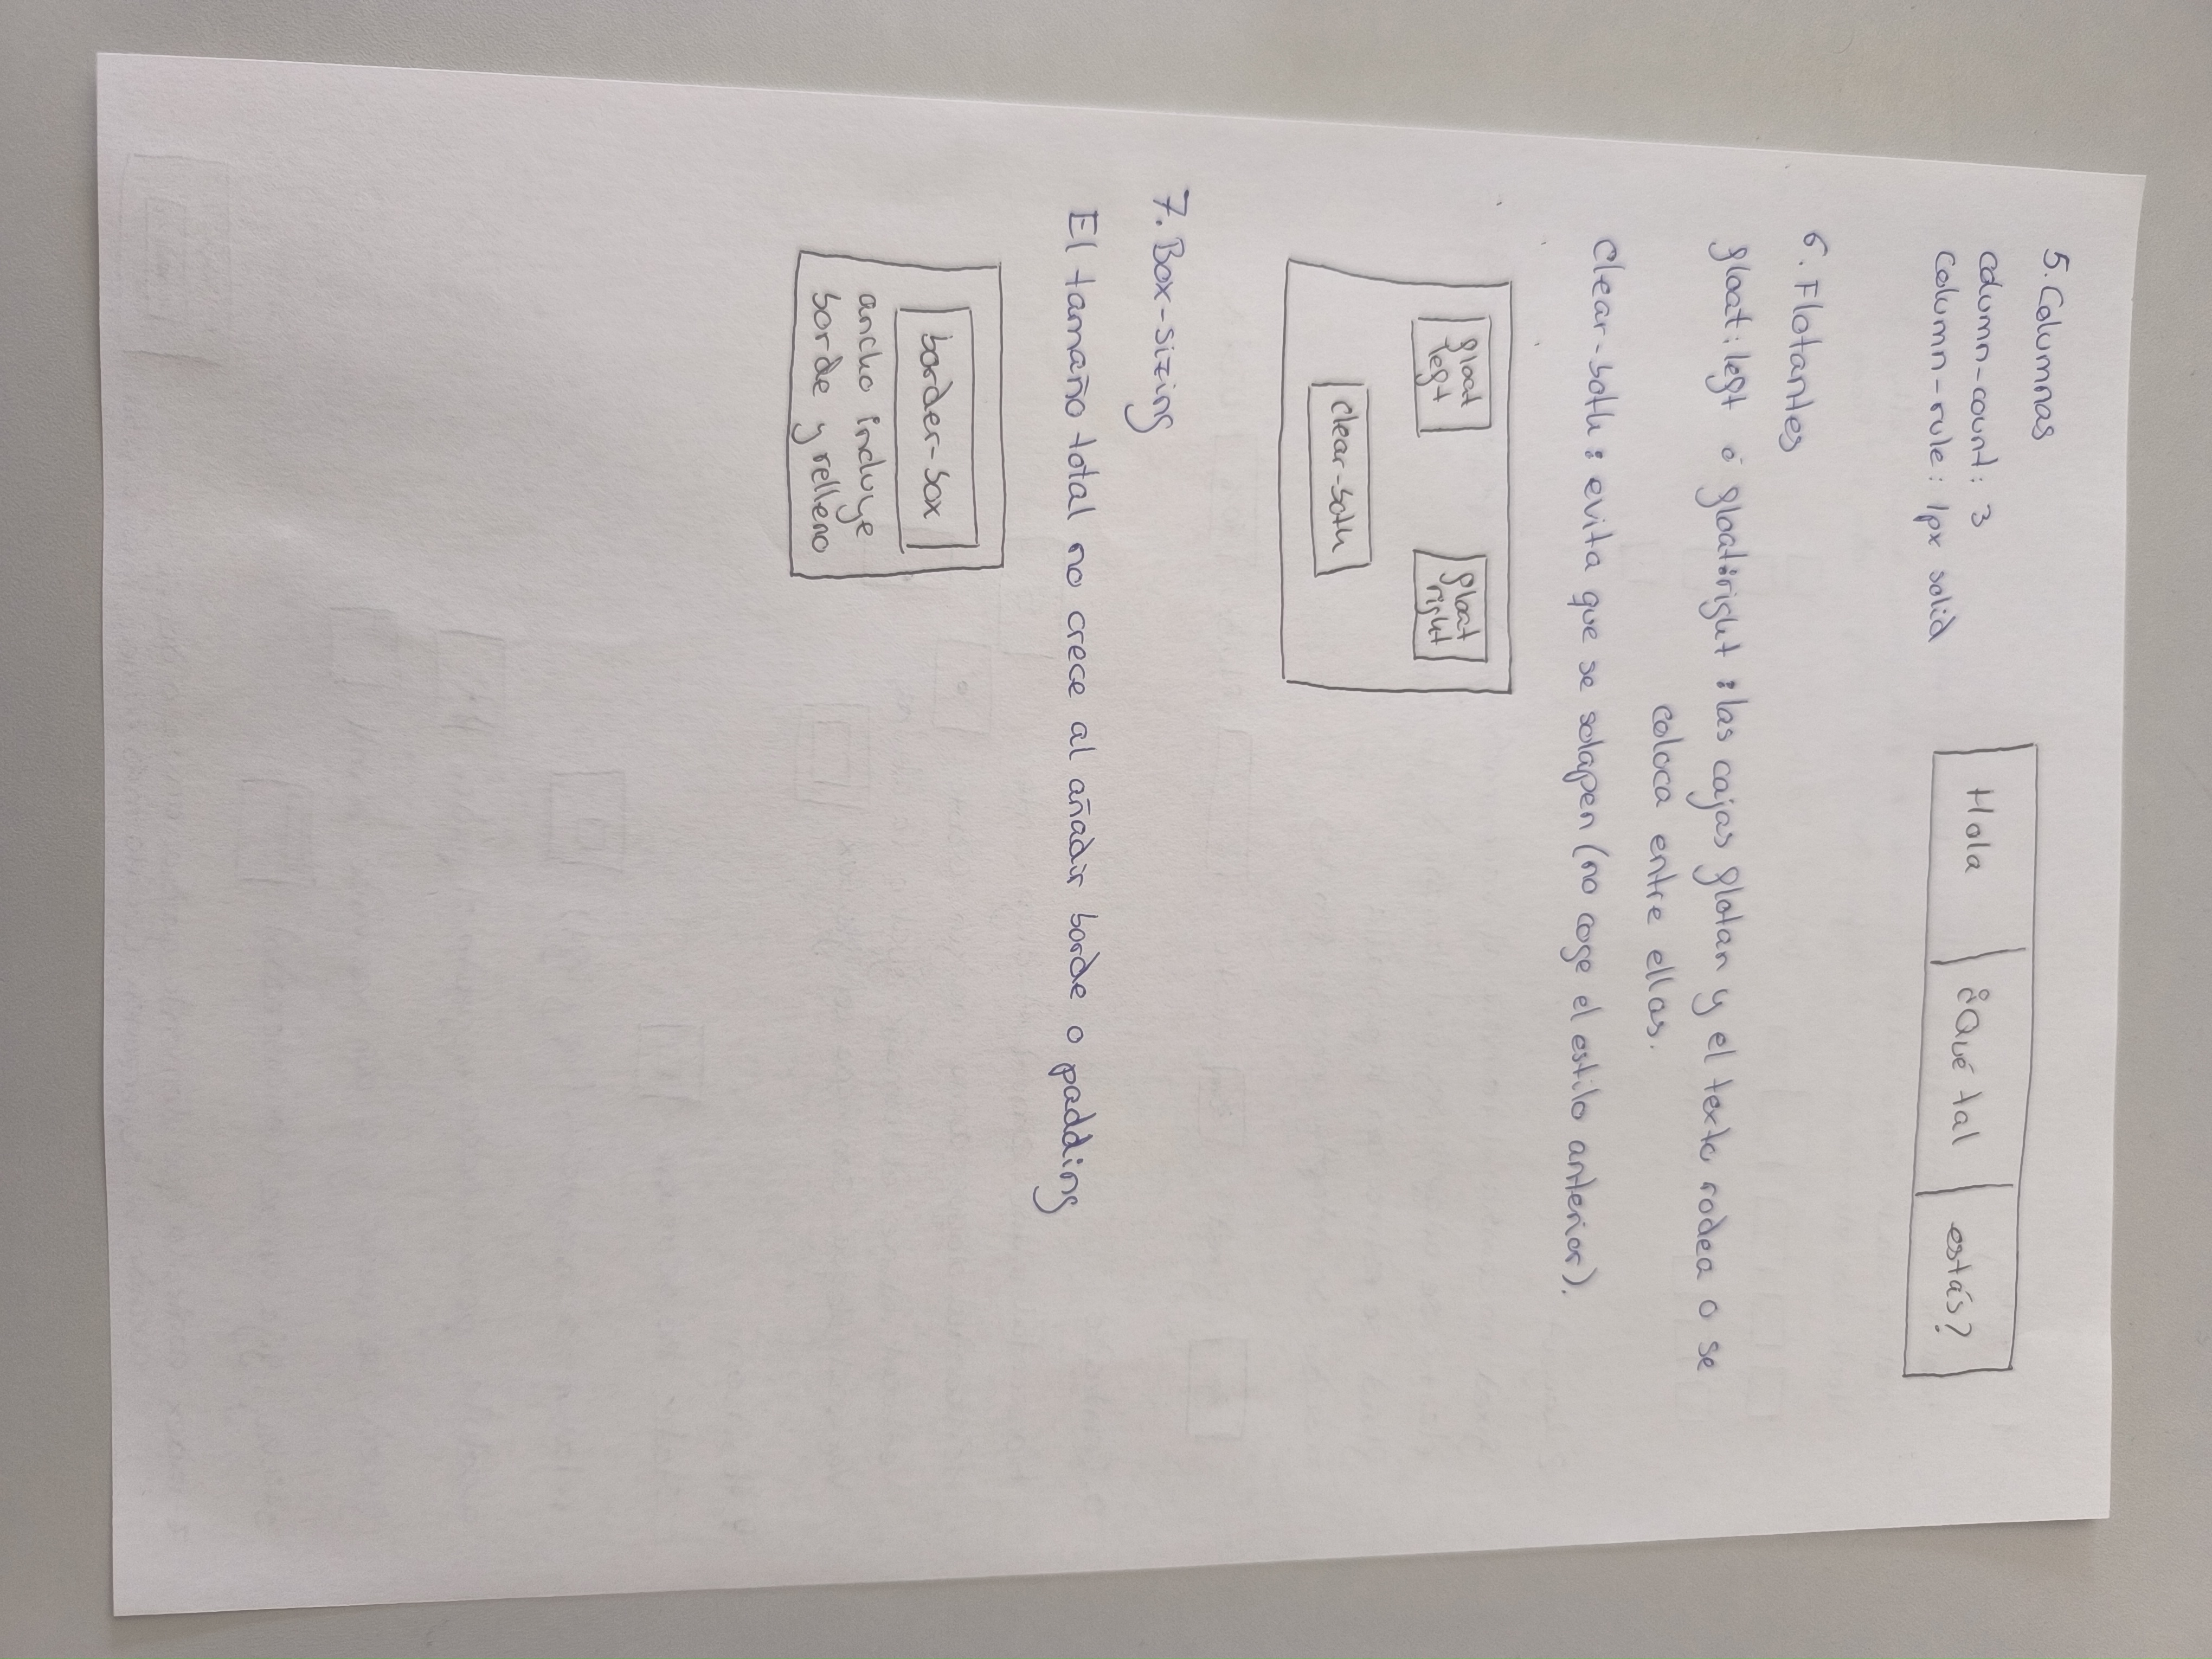 5. Columnas
column-count: 3
column-rule: 1px solid
Hola ¿Qué tal estás?
6. Flotantes
float: left ó float:right : las cajas flotan y el texto rodea o se
coloca entre ellas.
clear-both : evita que se solapen (no coge el estilo anterior).
float
left
float
right
clear-both
7. Box-sizing
El tamaño total no crece al añadir borde o padding
border-box
ancho incluye
borde y relleno